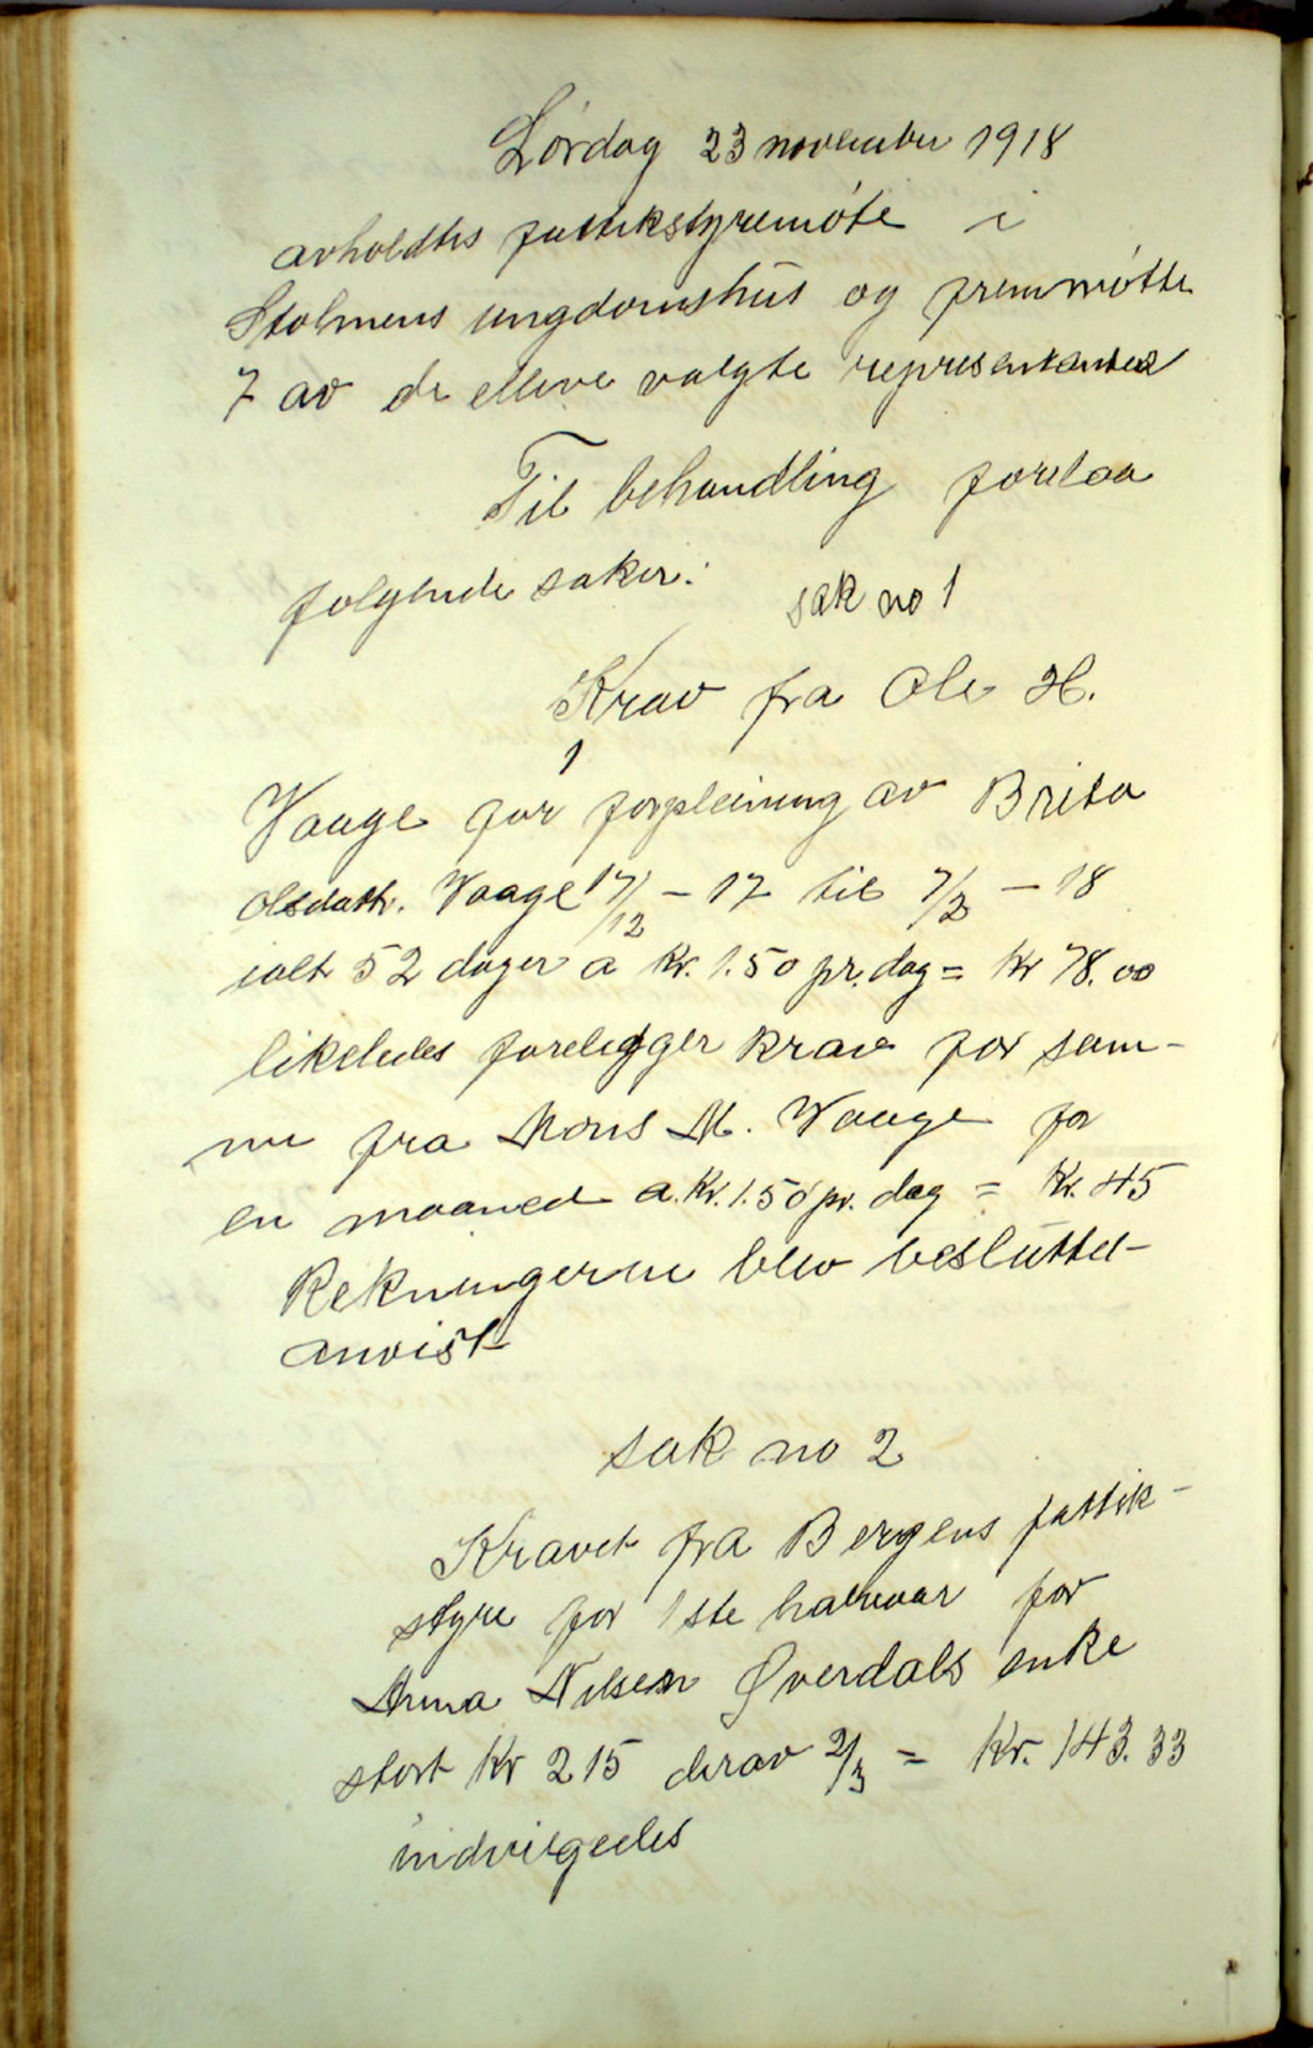 Lørdag 23 november 1918
avholdtes fattikstyremøte i
Stolmens ungdomshus og fremmøtte
7 av de elleve valgte representanter
Til behandling forelaa
følgende saker:
sak no 1
Krav fra Ole H.
1
Vaage for forpleining av Brita
Olsdattr. Vaage 17/12 - 17 til 7/2 - 18
ialt 52 dager a kr. 1.50 pr. dag = kr 78.00
likeledes foreligger krav for sam-
me fra Mons M. Vaage for
en maaned a. kr. 1.50 pr. dag = kr. 45
Rekningerne blev besluttet
anvist
sak no 2
Kravet fra Bergens fattik-
styre for 1ste halvaar for
Anna Nilsen Øverdals enke
stort kr 215 derav 2/3 = kr. 143.33
indvilgedes